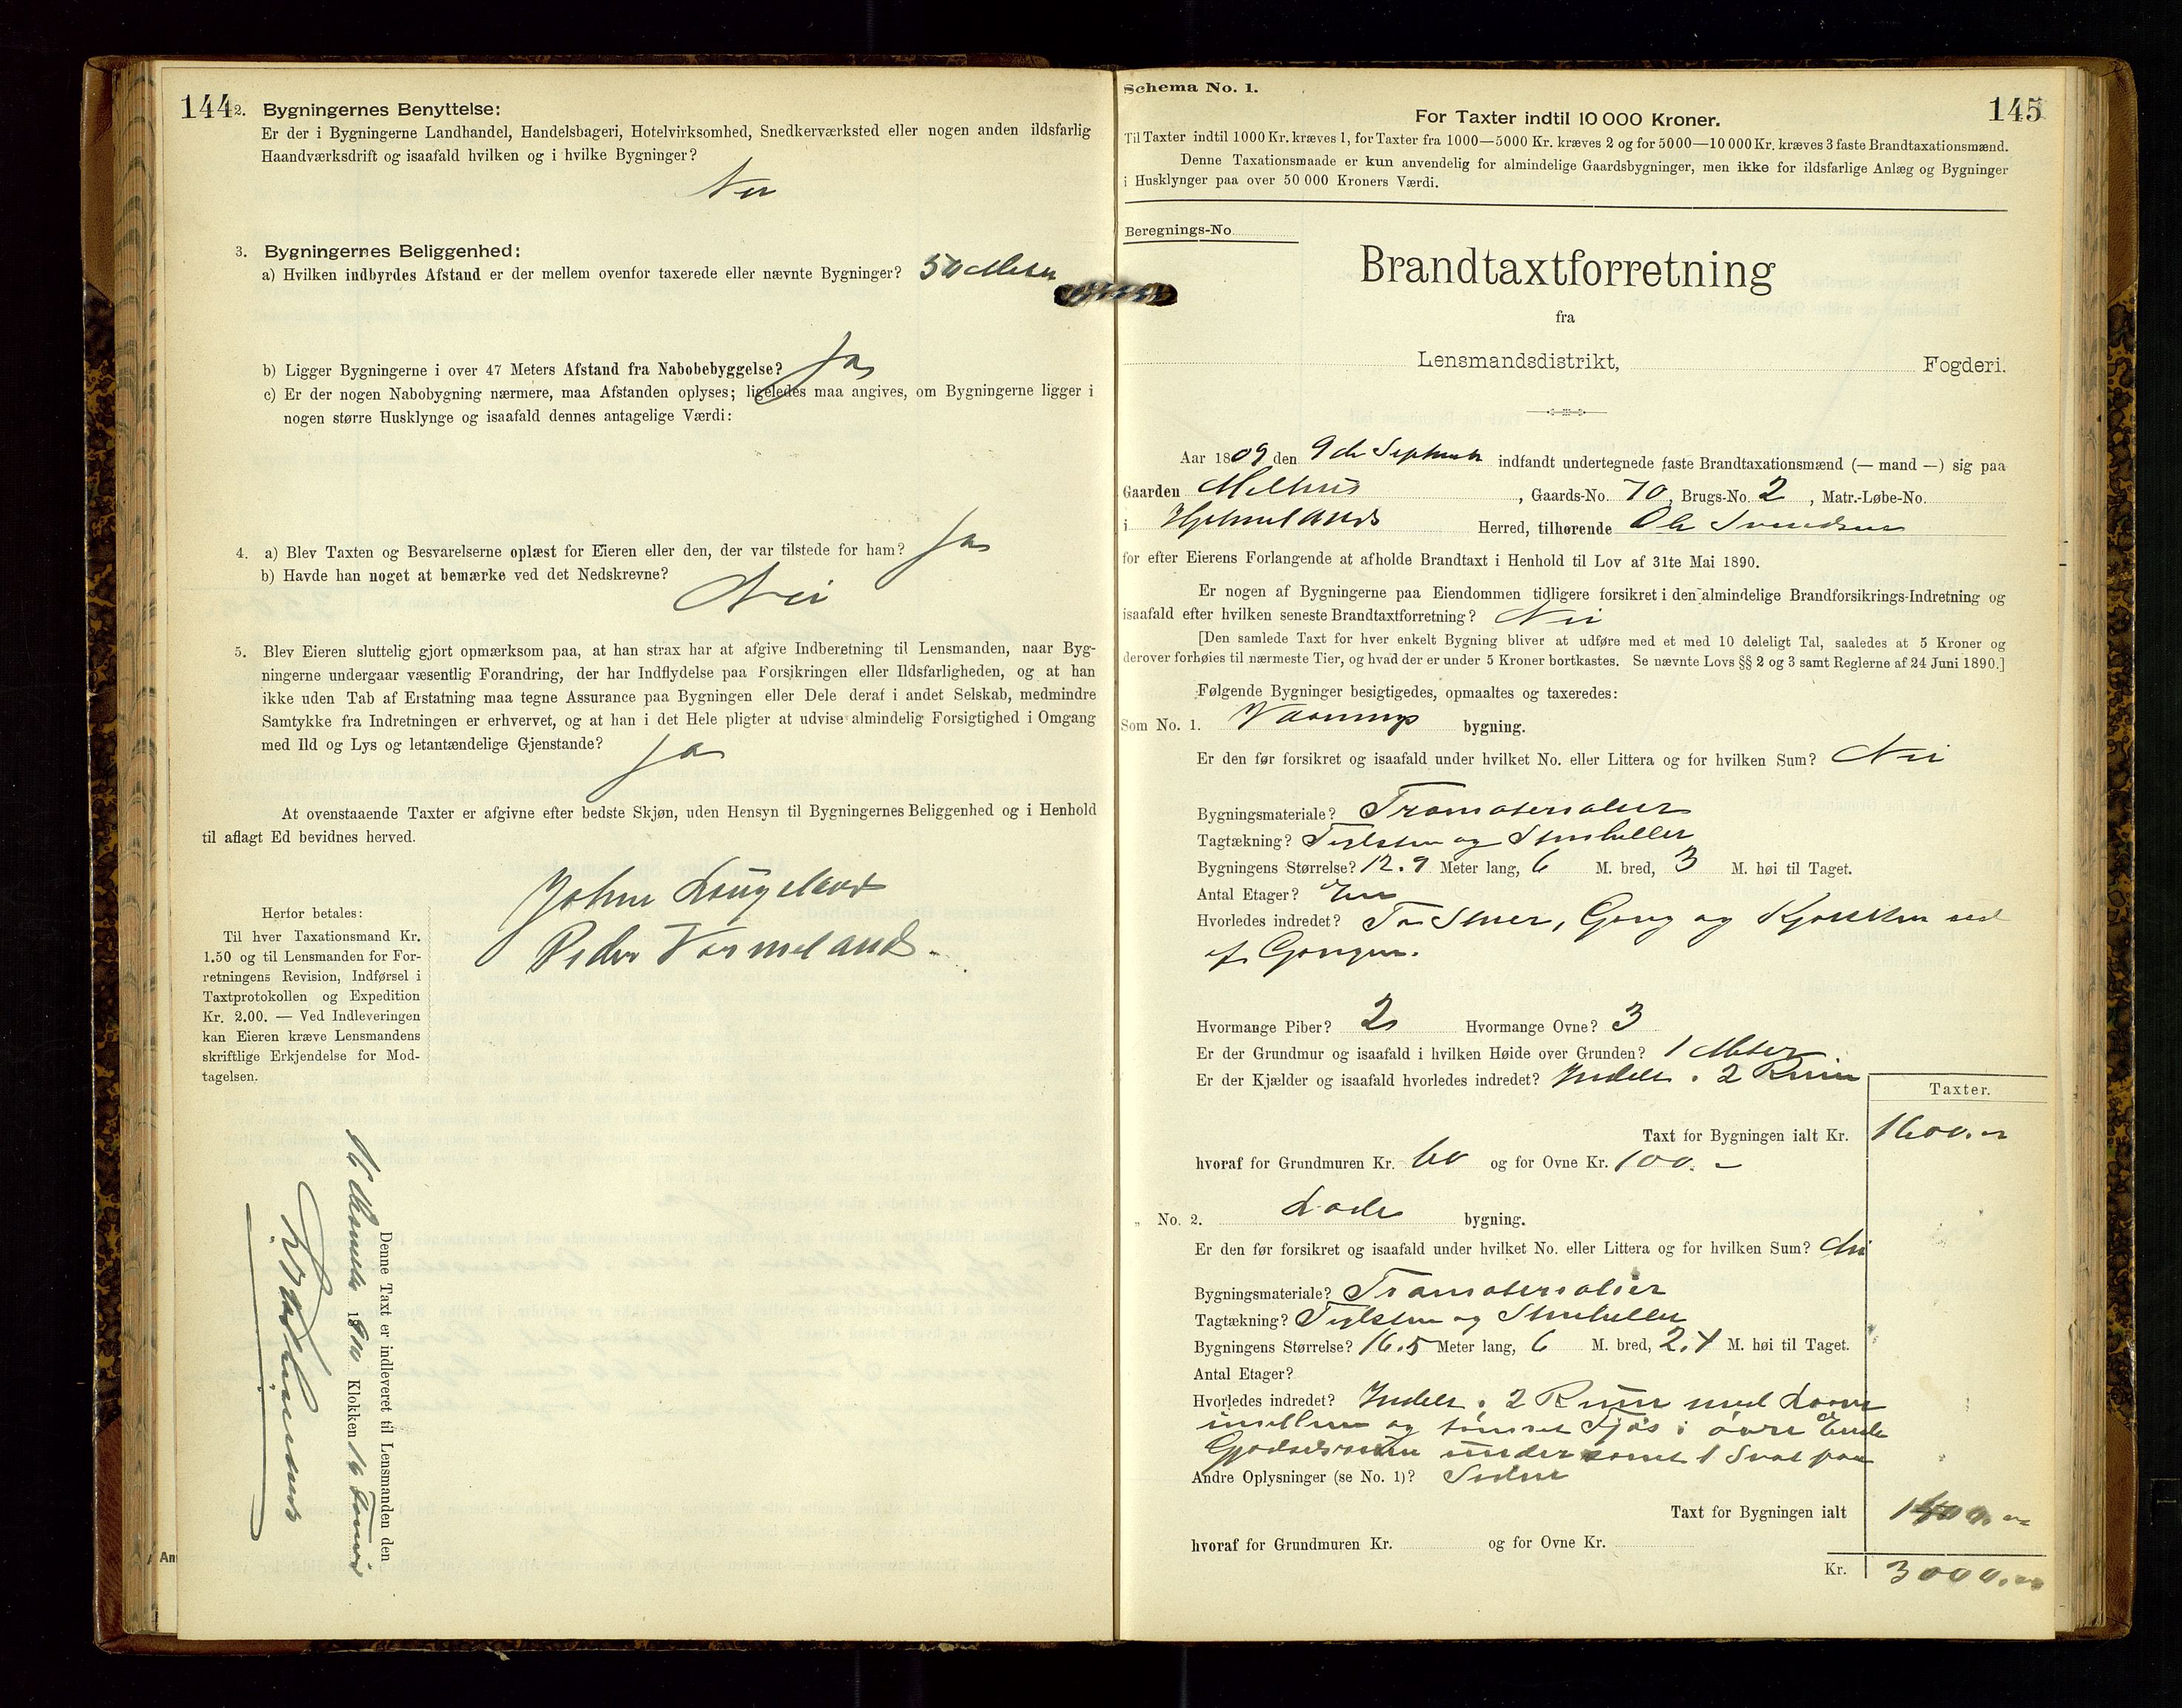 144
2. Bygningernes Benyttelse:
Er der i Bygningerne Landhandel, Handelsbageri, Hotelvirksomhed, Snedkerværksted eller nogen anden ildsfarlig
Haandværksdrift og isaafald hvilken og i hvilke Bygninger?
Nei
3. Bygningernes Beliggenhed:
a) Hvilken indbyrdes Afstand er der mellem ovenfor taxerede eller nævnte Bygninger? 50 Meter
b) Ligger Bygningerne i over 47 Meters Afstand fra Nabobebyggelse? Ja
c) Er der nogen Nabobygning nærmere, maa Afstanden oplyses; ligeledes maa angives, om Bygningerne ligger i
nogen større Husklynge og isaafald dennes antagelige Værdi:
4. a) Blev Taxten og Besvarelserne oplæst for Eieren eller den, der var tilstede for ham? Ja
b) Havde han noget at bemærke ved det Nedskrevne? Nei
5. Blev Eieren sluttelig gjort opmærksom paa, at han strax har at afgive Indberetning til Lensmanden, naar Byg-
ningerne undergaar væsentlig Forandring, der har Indflydelse paa Forsikringen eller Ildsfarligheden, og at han
ikke uden Tab af Erstatning maa tegne Assurance paa Bygningen eller Dele deraf i andet Selskab, medmindre
Samtykke fra Indretningen er erhvervet, og at han i det Hele pligter at udvise almindelig Forsigtighed i Omgang
med Ild og Lys og letantændelige Gjenstande? Ja
At ovenstaaende Taxter er afgivne efter bedste Skjøn, uden Hensyn til Bygningernes Beliggenhed og i Henhold
til aflagt Ed bevidnes herved.
John Laugeland
Peder Vormeland.
Herfor betales:
Til hver Taxationsmand Kr.
1.50 og til Lensmanden for For-
retningens Revision, Indførsel i
Taxtprotokollen og Expedition
Kr. 2.00. — Ved Indleveringen
kan Eieren kræve Lensmandens
skriftlige Erkjendelse for Mod-
tagelsen.
Denne Taxt er indleveret til Lensmanden den
18 Klokken
Schema No. 1.
145
For Taxter indtil 10 000 Kroner.
Til Taxter indtil 1000 Kr. kræves 1, for Taxter fra 1000—5000 Kr. kræves 2 og for 5000—10 000 Kr. kræves 3 faste Brandtaxationsmænd.
Denne Taxationsmaade er kun anvendelig for almindelige Gaardsbygninger, men ikke for ildsfarlige Anlæg og Bygninger
i Husklynger paa over 50 000 Kroners Værdi.
Beregnings-No.
Brandtaxtforretning
fra
Lensmandsdistrikt, Fogderi.
Aar 1809 den 9de September indfandt undertegnede faste Brandtaxationsmænd (— mand —) sig paa
Gaarden Melhus, Gaards-No. 70, Brugs-No. 2, Matr.-Løbe-No.
i Hjelmelands Herred, tilhørende Ole Svendsen
for efter Eierens Forlangende at afholde Brandtaxt i Henhold til Lov af 31te Mai 1890.
Er nogen af Bygningerne paa Eiendommen tidligere forsikret i den almindelige Brandforsikrings-Indretning og
isaafald efter hvilken seneste Brandtaxtforretning? Nei
[Den samlede Taxt for hver enkelt Bygning bliver at udføre med et med 10 deleligt Tal, saaledes at 5 Kroner og
derover forhøies til nærmeste Tier, og hvad der er under 5 Kroner bortkastes. Se nævnte Lovs §§ 2 og 3 samt Reglerne af 24 Juni 1890.]
Følgende Bygninger besigtigedes, opmaaltes og taxeredes:
Som No. 1. Vaanings bygning.
Er den før forsikret og isaafald under hvilket No. eller Littera og for hvilken Sum? Nei
Bygningsmateriale? Træmaterialier
Tagtækning? Teglsten og Stenheller
Bygningens Størrelse? 12.9 Meter lang, 6 M. bred, 3 M. høi til Taget.
Antal Etager? En
Hvorledes indredet? To Stuer, Gang og Kjøkken ved
af Gangen.
Hvormange Piber? 2 Hvormange Ovne? 3
Er der Grundmur og isaafald i hvilken Høide over Grunden? 1 Meter
Er der Kjælder og isaafald hvorledes indredet? Indelt i 2 Rum
Taxter.
Taxt for Bygningen ialt Kr. 1600.
hvoraf for Grundmuren Kr. 60 og for Ovne Kr. 100. -
„ No. 2. Lade bygning.
Er den før forsikret og isaafald under hvilket No. eller Littera og for hvilken Sum? Nei
Bygningsmateriale? Træmaterialier
Tagtækning? Teglsten og Stenheller
Bygningens Størrelse? 16.5 Meter lang, 6 M. bred, 2.4 M. høi til Taget.
Antal Etager?
Hvorledes indredet? Indelt i 2 Rum med Laave
imellem og tømret Fjøs i øvre Ende
Gjødselrum under samt 1 Sval paa
Andre Oplysninger (se No. 1)? Siden
Taxt for Bygningen ialt 1400.
hvoraf for Grundmuren Kr. og for Ovne Kr.
Kr. 3000.